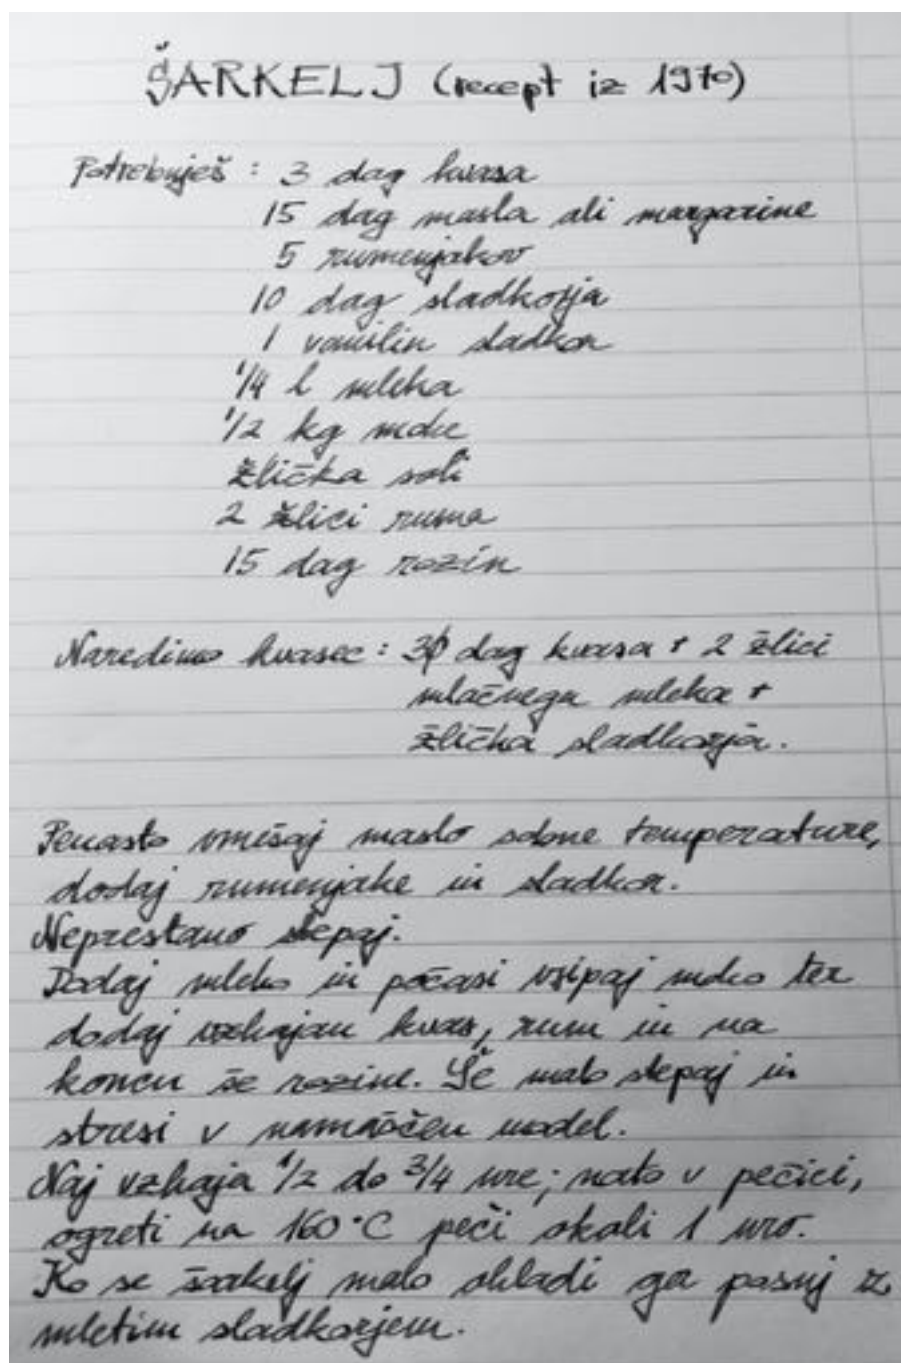 ŠARKELJ (recept iz 1970)
Potrebuješ : 3 dag kvasa
15 dag masla ali margarine
5 rumenjakov
10 dag sladkorja
1 vanilin sladkor
1/4 l mleka
1/2 kg moke
žlička soli
2 žlici ruma
15 dag rozin
Naredimo kvasec : 3 dag kvasa + 2 žlici
mlačnega mleka +
žlička sladkorja.
Penasto vmešaj maslo sobne temperature,
dodaj rumenjake in sladkor.
Neprestano stepaj.
Dodaj mleko in počasi vsipaj moko ter
dodaj vzhajan kvas, rum in na
koncu še rozine. Še malo stepaj in
stresi v namaščen model.
Naj vzhaja 1/2 do 3/4 ure; nato v pečici,
ogreti na 160°C peči okoli 1 uro.
Ko se šarkelj malo ohladi ga posuj z
mletim sladkorjem.